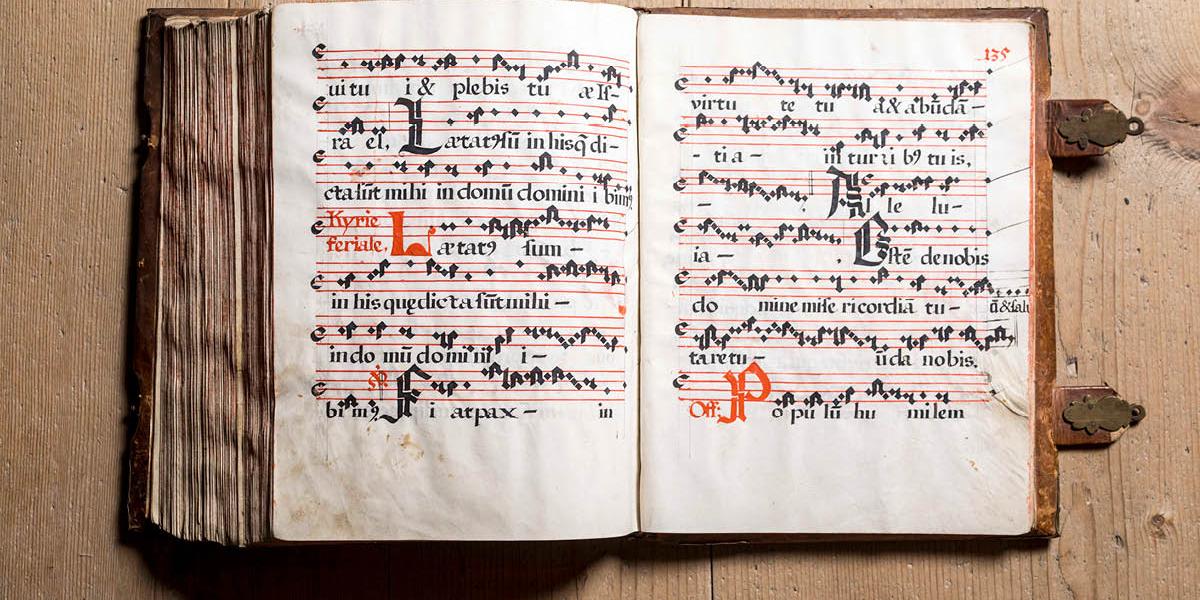 uitu i & plebis tu æ Iſ-
ra el, Lætatꝰ sũ in his q̃ di-
cta sũt mihi in domũ domini i bimꝰ
Kyrie
feriale. Lætatꝰ sum -
in his quę dicta sũt mihi -
in do mũ do mi ni i -
bi mꝰ F i at pax - in
135
virtu te tu a & abũdã-
- ti a - in turri bꝰ tuis,
- Alle lu-
ia - . Oſtẽ de nobis
do mine miſe ricordiã tu- ũ & ſalu
tare tu - ũ da nobis.
Off: Po pu lũ hu milem